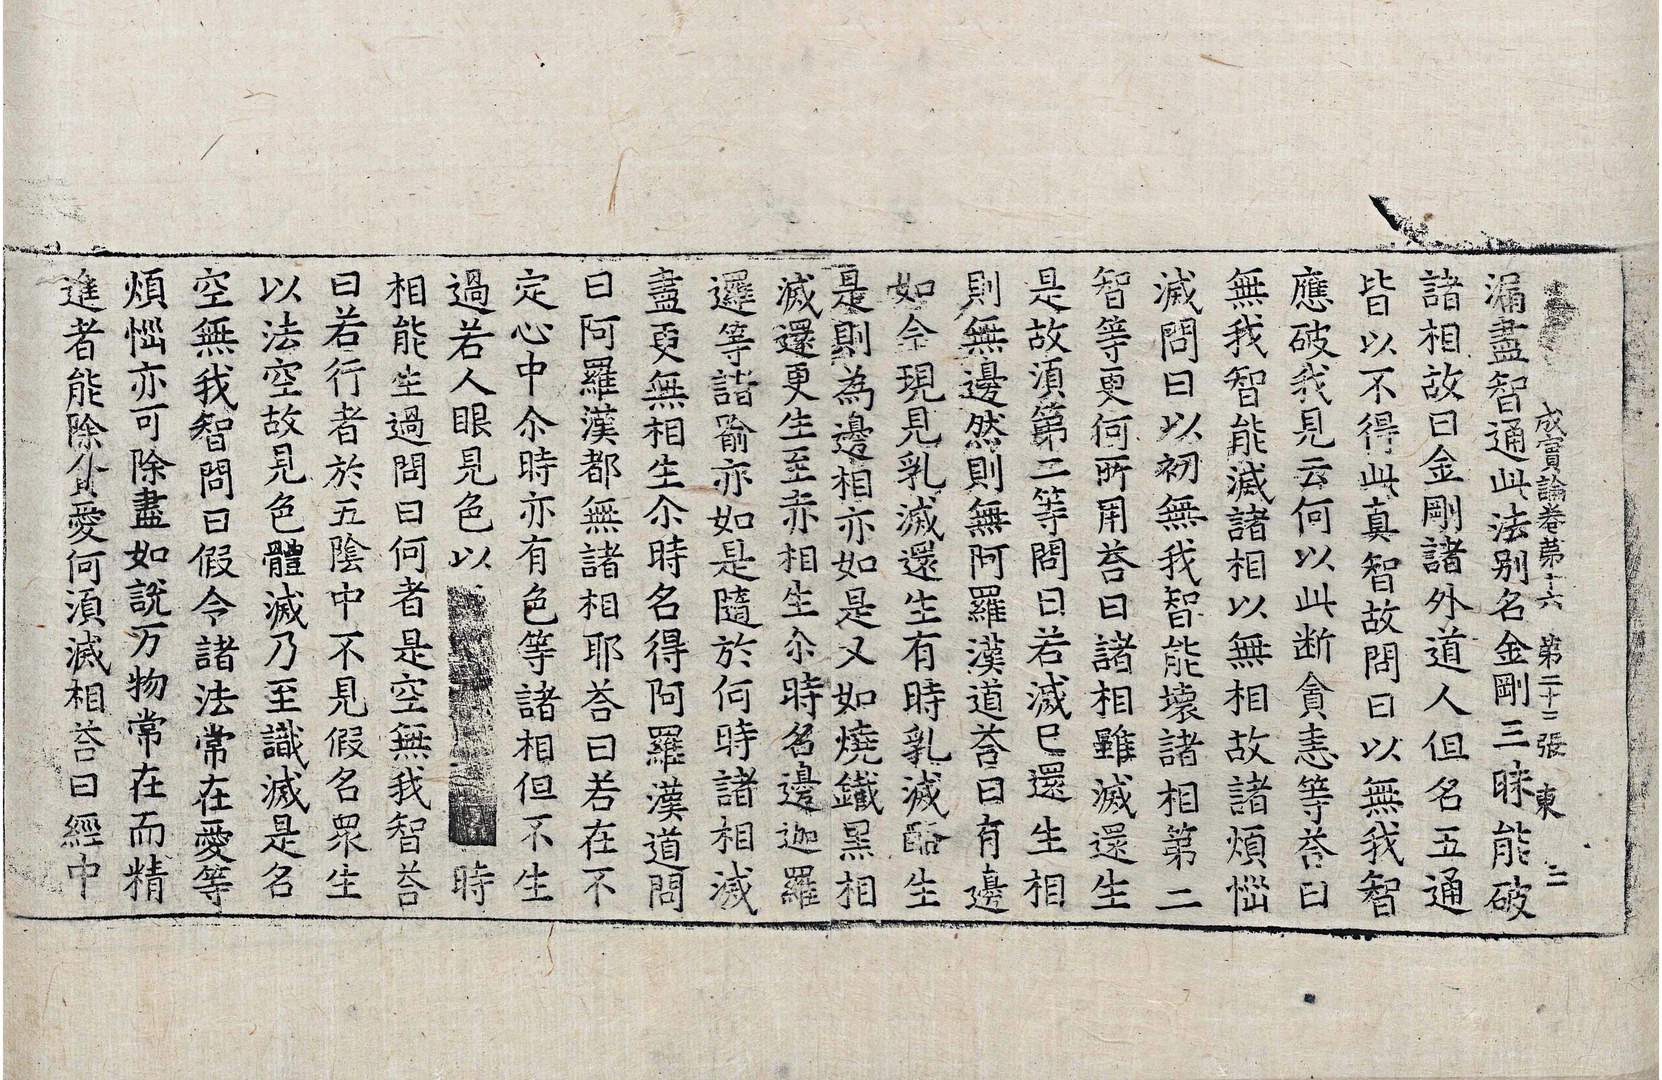 成實論卷第十六　第二十二張　東　二
漏盡智通此法別名金剛三昧能破
諸相故曰金剛諸外道人但名五通
皆以不得此真智故問曰以無我智
應破我見云何以此断貪恚等荅曰
無我智能滅諸相以無相故諸煩惱
滅問曰以初無我智能壞諸相第二
智等更何所用荅曰諸相雖滅還生
是故湏第二等問曰若滅已還生相
則無邊然則無阿羅漢道荅曰有邊
如今現見乳滅還生有時乳滅酪生
是則為邊相亦如是又如燒鐵黑相
滅還更生至赤相生尒時名邊迦羅
邏等諸喻亦如是隨於何時諸相滅
盡更無相生尒時名得阿羅漢道問
曰阿羅漢都無諸相耶荅曰若在不
定心中尒時亦有色等諸相但不生
過若人眼見色以時
相能生過問曰何者是空無我智荅
曰若行者於五陰中不見假名眾生
以法空故見色體滅乃至識滅是名
空無我智問曰假令諸法常在愛等
煩惱亦可除盡如說万物常在而精
進者能除貪愛何湏滅相荅曰經中